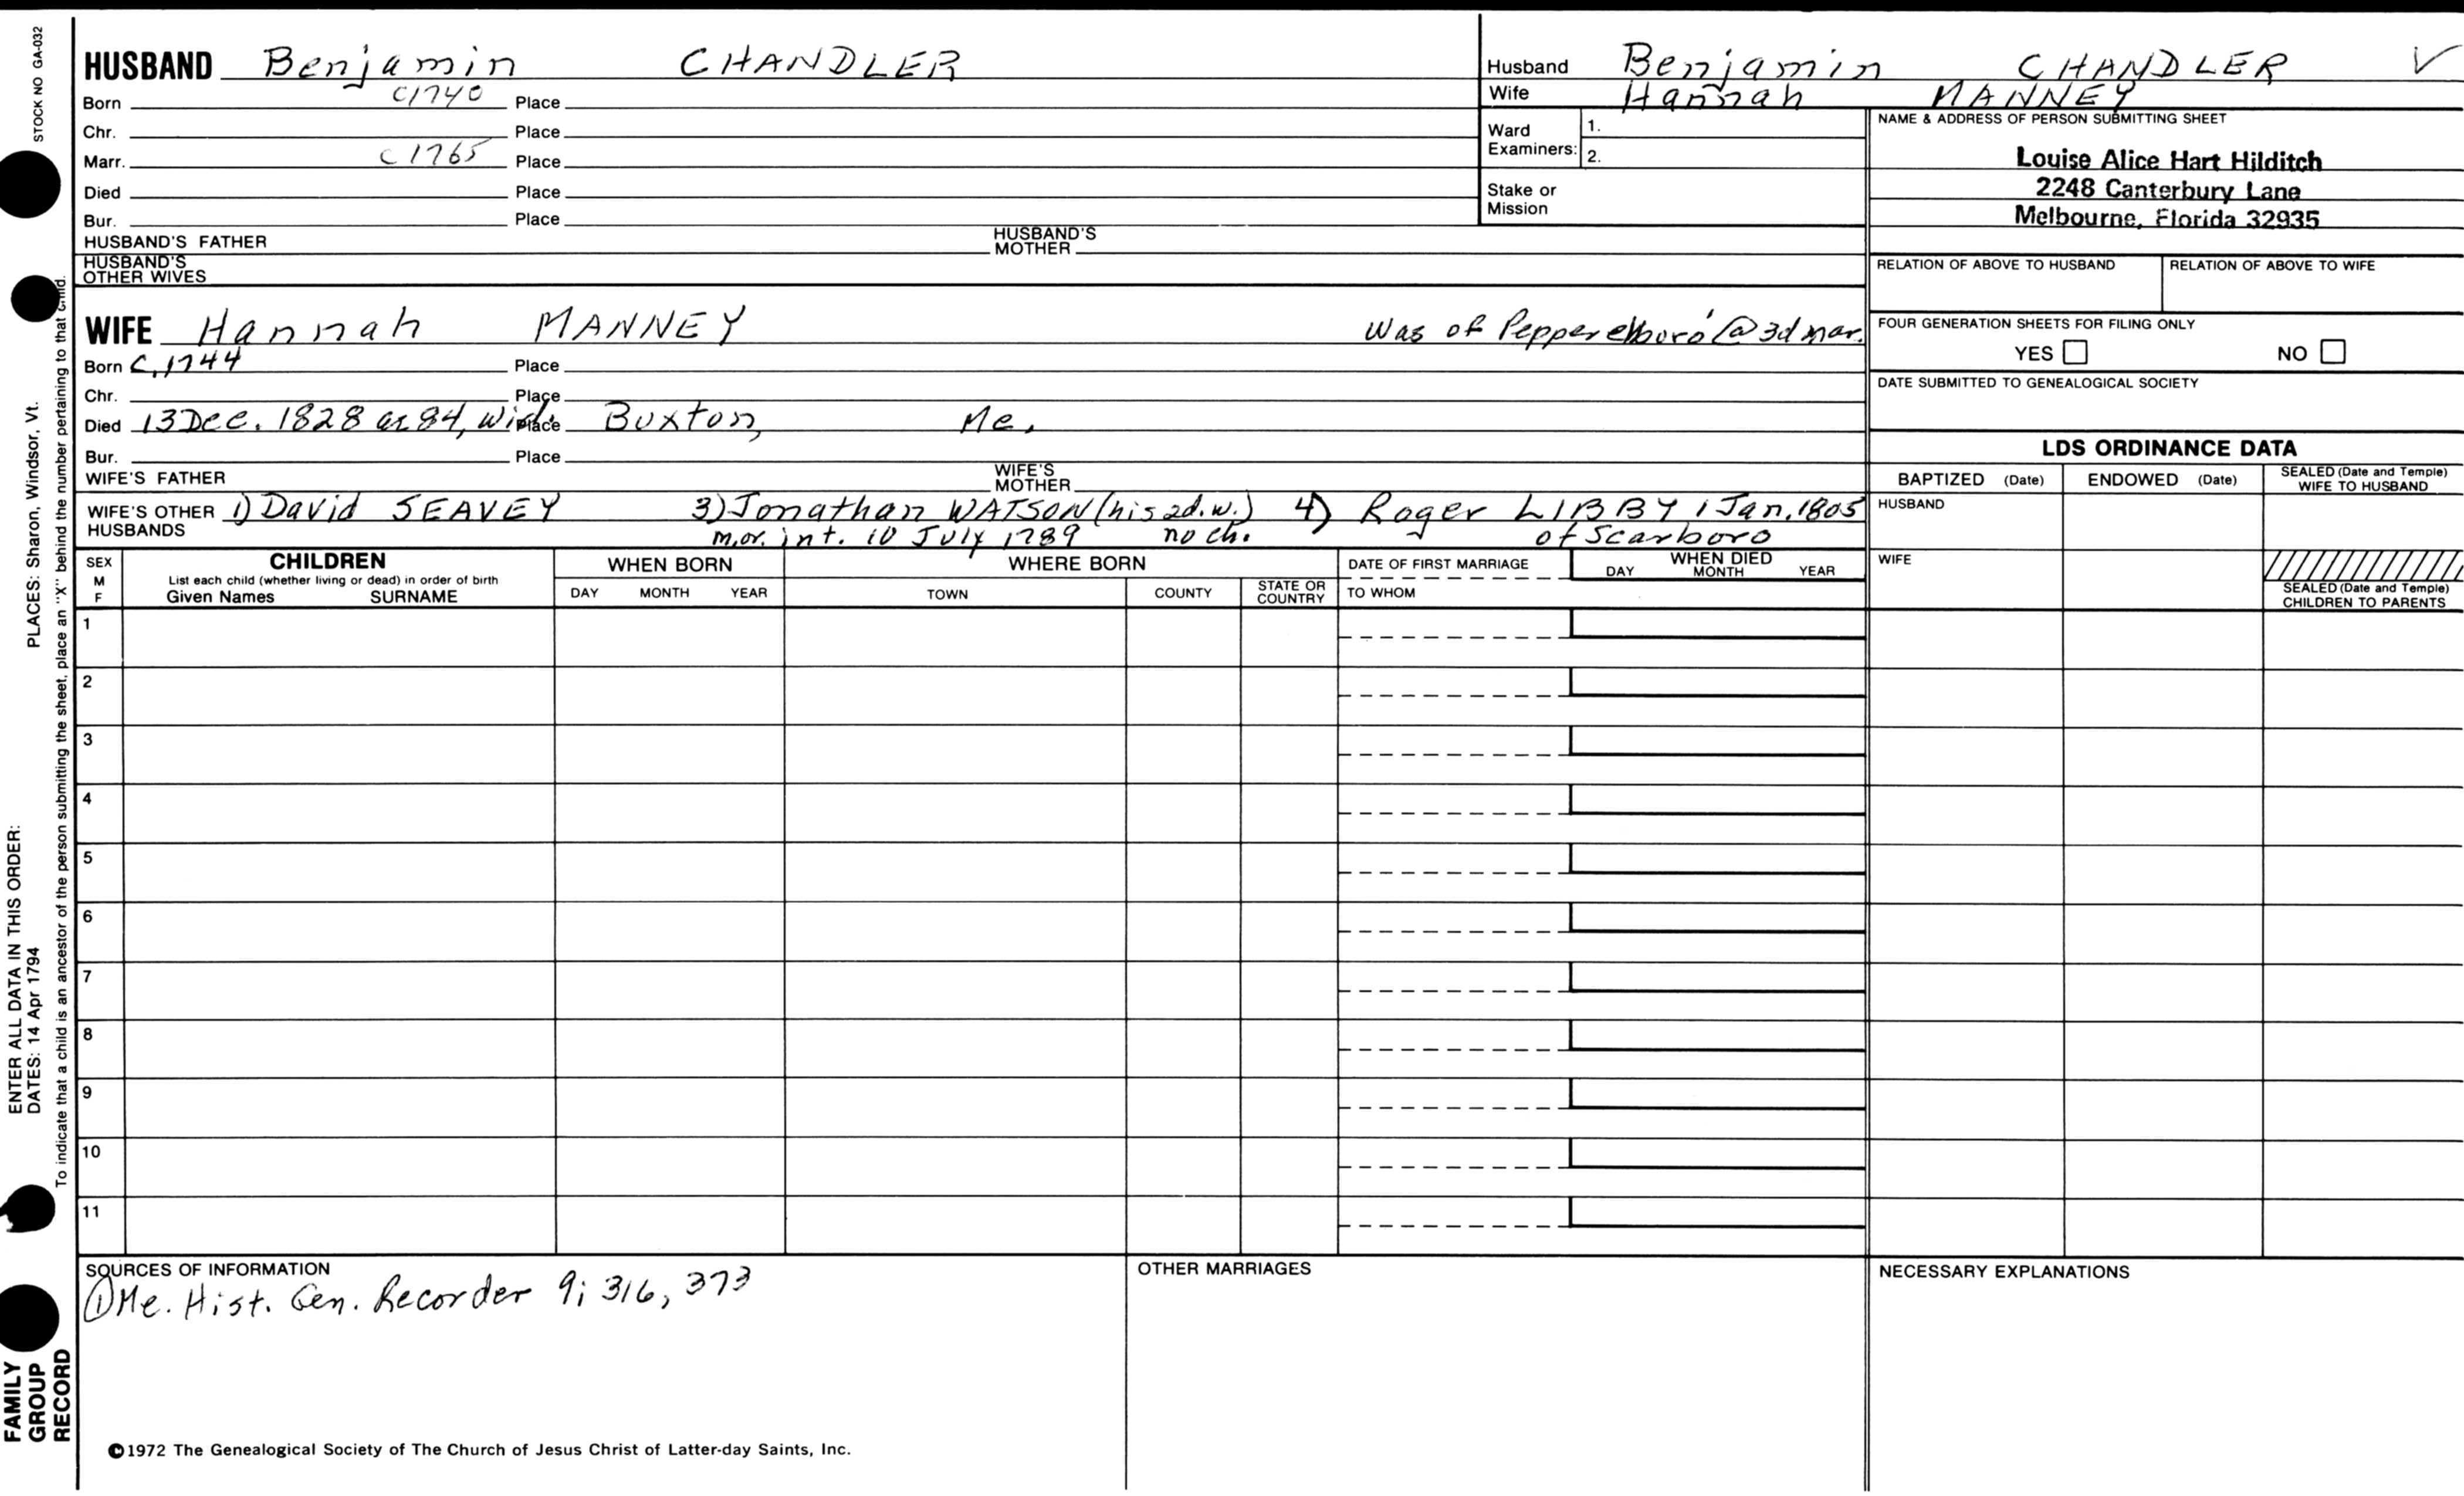 STOCK NO GA-032
PLACES: Sharon, Windsor, Vt.
ENTER ALL DATA IN THIS ORDER:
DATES: 14 Apr 1794
To indicate that a child is an ancestor of the person submitting the sheet, place an "X" behind the number pertaining to that child.
FAMILY
GROUP
RECORD
HUSBAND Benjamin CHANDLER
Born C1740 Place
Chr. Place
Marr. C1765 Place
Died Place
Bur. Place
HUSBAND'S FATHER HUSBAND'S MOTHER
HUSBAND'S OTHER WIVES
WIFE Hannah MANNEY Was of Pepperellboro' @ 3d mar.
Born C.1744 Place
Chr. Place
Died 13 Dec. 1828 ae 84, wid. Place Buxton, Me.
Bur. Place
WIFE'S FATHER WIFE'S MOTHER
WIFE'S OTHER HUSBANDS 1) David SEAVEY 3) Jonathan WATSON (his 2d. w.) 4) Roger LIBBY 1 Jan. 1805
m. or. int. 10 July 1789 no ch. of Scarboro
Husband Benjamin CHANDLER V
Wife Hannah MANNEY
Ward Examiners: 1.
2.
Stake or Mission
NAME & ADDRESS OF PERSON SUBMITTING SHEET
Louise Alice Hart Hilditch
2248 Canterbury Lane
Melbourne, Florida 32935
RELATION OF ABOVE TO HUSBAND RELATION OF ABOVE TO WIFE
FOUR GENERATION SHEETS FOR FILING ONLY
YES NO
DATE SUBMITTED TO GENEALOGICAL SOCIETY
LDS ORDINANCE DATA
BAPTIZED (Date) ENDOWED (Date) SEALED (Date and Temple) WIFE TO HUSBAND
HUSBAND
WIFE
SEALED (Date and Temple) CHILDREN TO PARENTS
SEX M F
CHILDREN
List each child (whether living or dead) in order of birth
Given Names SURNAME
WHEN BORN
DAY MONTH YEAR
WHERE BORN
TOWN COUNTY STATE OR COUNTRY
DATE OF FIRST MARRIAGE
TO WHOM
WHEN DIED
DAY MONTH YEAR
1
2
3
4
5
6
7
8
9
10
11
SOURCES OF INFORMATION
① Me. Hist. Gen. Recorder 9; 316, 373
OTHER MARRIAGES
NECESSARY EXPLANATIONS
©1972 The Genealogical Society of The Church of Jesus Christ of Latter-day Saints, Inc.